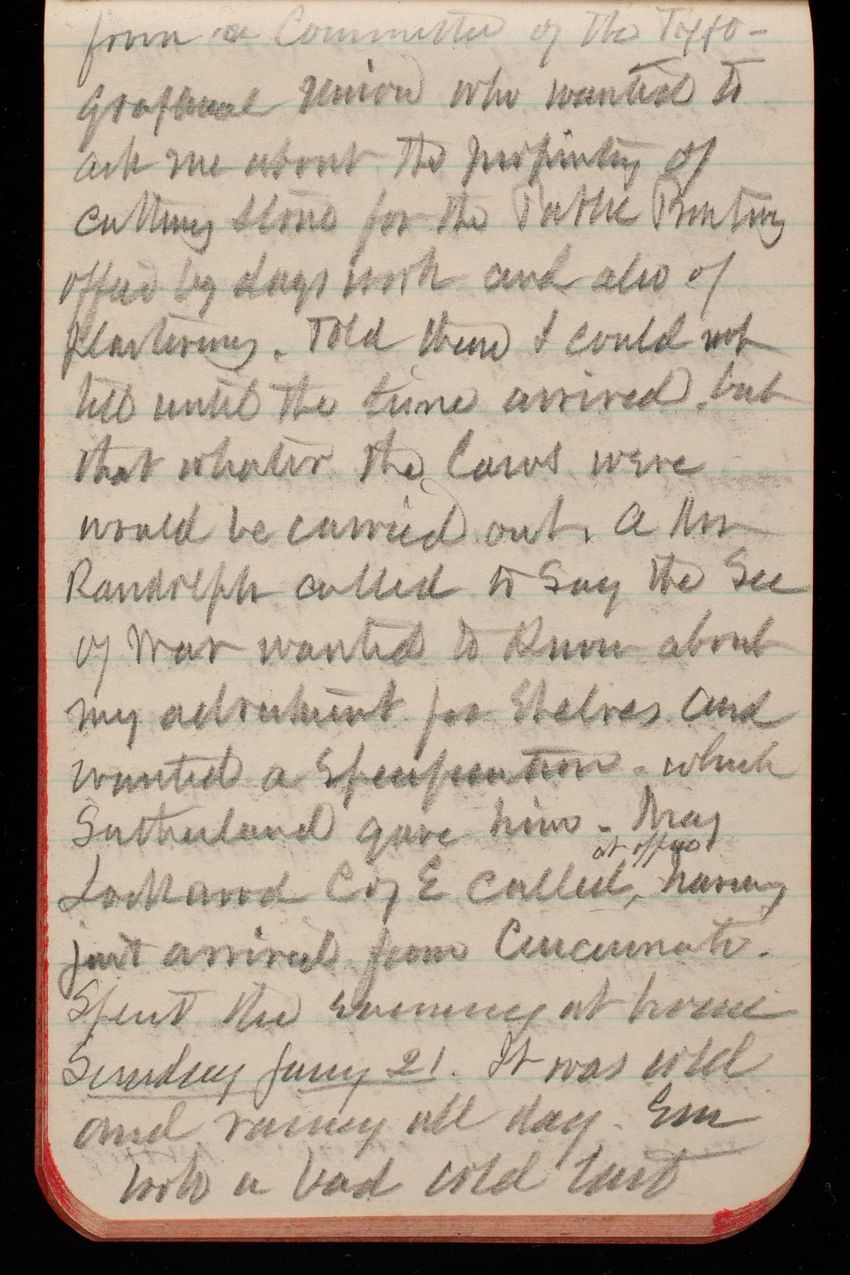 from a Committee of the Typo-
grafical Union who wanted to
ask me about the propriety of
cutting stone for the Public Printing
office by days work and also of
plastering. Told them I could not
tell until the time arrived, but
that whatever the laws were
would be carried out. A Mr
Randolph called to say the Sec
of War wanted to know about
my advertisement for Shelves and
wanted a Specification - which
Sutherland gave him - Maj
at office
Lockwood C of E called, having
just arrived from Cincinnati.
Spent the evening at home
Sunday Jany 21. It was cold
and rainey all day. Em
took a bad cold last